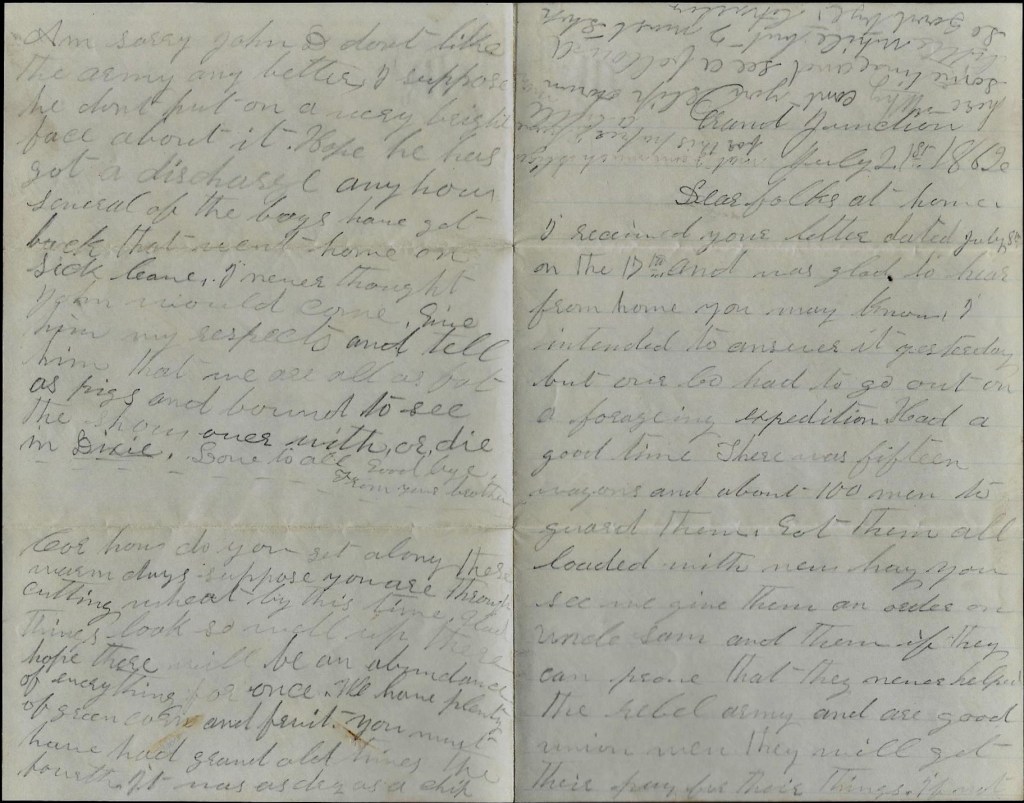 Grand Junction
July 21st 1862
Dear folks at home
I received your letter dated July 8th
on the 17th and was glad to hear
from home you may know, I
intended to answer it yesterday
but our Co had to go out on
a forageing expedition Had a
good time There was fifteen
wagons and about 100 men to
guard them, Got them all
loaded with new hay you
see we give them an order on
Uncle Sam and them if they
can prove that they never helped
the rebel army and are good
union men they will get
their pay for their things. if not
Am sorry John D dont like
the army any better, I suppose
he dont put on a very bright
face about it. Hope he has
got a discharge any how
Several of the boys have got
back that went home on
sick leave. I never thought
would come. Give
him my respects and tell
him that we are all as fat
as pigs and bound to see
the show over with, or, die
in Dixie. Love to all Good bye,
From your brother
how do you get along these
warm days suppose you are through
cutting wheat by this time, glad
things look so well up there
hope there will be an abundance
of everything for once. We have plenty
of green corn and fruit. You must
have had grand old times the
fourth. It was as dry as a chip
here why cant you slip down
some time and see a fellow
little while but I must stop
So Good bye